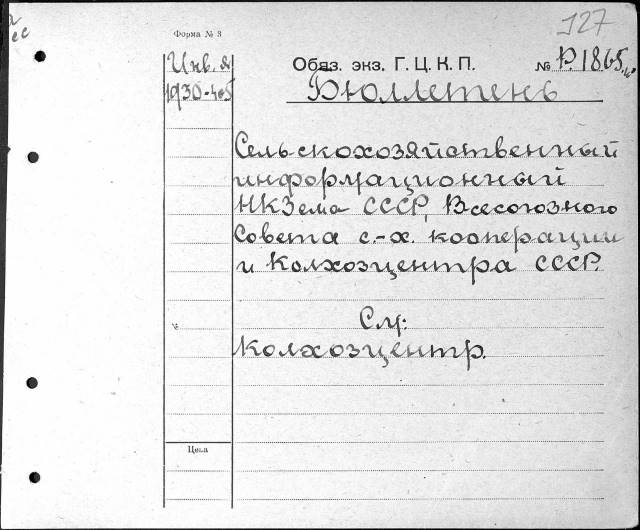 127
Форма № 3
Инв. №
1930-405
Обяз. экз. Г. Ц. К. П.
№ Р.1865
Бюллетень
Сельскохозяйственный
информационный
НКЗема СССР, Всесоюзного
Совета с.-х. кооперации
и Колхозцентра СССР.
№
См:
Колхозцентр.
Цена